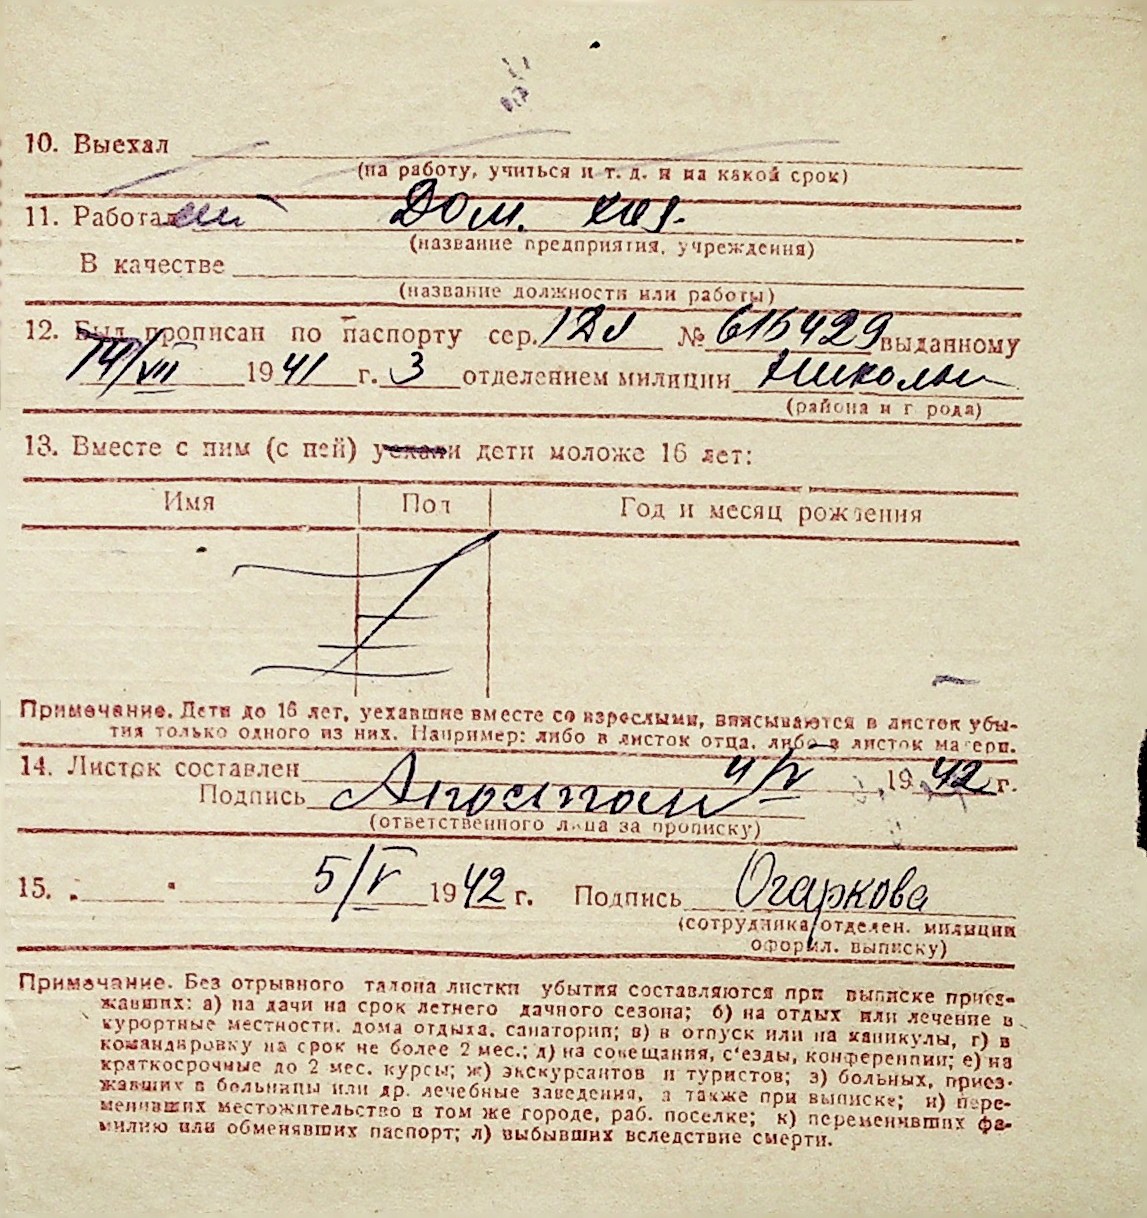 10. Выехал
(на работу, учиться и т. д. и на какой срок)
11. Работал Дом. хоз.
(название предприятия, учреждения)
В качестве
(название должности или работы)
12. Был прописан по паспорту сер. № 615429 выданному
14/VII 1941 г. 3 отделением милиции
(района и г рода)
13. Вместе с ним (с ней) уехали дети моложе 16 лет:
Имя Пол Год и месяц рождения
Примечание. Дети до 16 лет, уехавшие вместе со взрослыми, вписываются в листок убы-
тия только одного из них. Например: либо в листок отца, либо в листок матери.
14. Листок составлен 4/V 1942 г.
Подпись
(ответственного лица за прописку)
15. 5/V 1942 г. Подпись Огаркова
(сотрудника отделен. милиции
оформл. выписку)
Примечание. Без отрывного талона листки убытия составляются при выписке приез-
жавших: а) на дачи на срок летнего дачного сезона; б) на отдых или лечение в
курортные местности, дома отдыха, санатории; в) в отпуск или на каникулы, г) в
командировку на срок не более 2 мес.; д) на совещания, с'езды, конференции; е) на
краткосрочные до 2 мес. курсы; ж) экскурсантов и туристов; з) больных, приез-
жавших в больницы или др. лечебные заведения, а также при выписке; и) пере-
менивших местожительство в том же городе, раб. поселке; к) переменивших фа-
милию или обменявших паспорт; л) выбывших вследствие смерти.